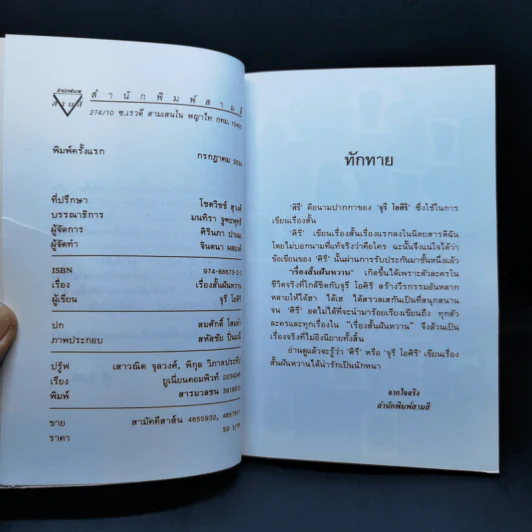 สำนักพิมพ์
สามสี
สำนักพิมพ์สามสี
274/10 ซ.เรวดี สามเสนใน พญาไท กทม. 10400
พิมพ์ครั้งแรก กรกฎาคม
ที่ปรึกษา โชติวิชช์
บรรณาธิการ มนทิรา
ผู้จัดการ ศิรินภา
ผู้จัดทำ จินตนา
ISBN 974-88673-3
เรื่อง เรื่องสั้นฝันหวาน
ผู้เขียน จุรี โอศิริ
ปก สมศักดิ์
ภาพประกอบ สหัสชัย
ปรู๊ฟ เสาวณิต จุลวงศ์, พิกุล
เรียง ยูเนี่ยนคอมพิวท์
พิมพ์ สารมวลชน
ขาย สามัคคีสาส์น 4655932,
ราคา 50 บาท
ทักทาย
'ศิรี' คือนามปากกาของ 'จุรี โอศิริ' ซึ่งใช้ในการ
เขียนเรื่องสั้น
'ศิรี' เขียนเรื่องสั้นเรื่องแรกลงในนิตยสารดิฉัน
โดยไม่บอกนามที่แท้จริงว่าคือใคร ฉะนั้นจึงแน่ใจได้ว่า
ข้อเขียนของ 'ศิรี' นั้นผ่านการรับประกันมาชั้นหนึ่งแล้ว
"เรื่องสั้นฝันหวาน" เกิดขึ้นได้เพราะตัวละครใน
ชีวิตจริงที่ใกล้ชิดกับ จุรี โอศิริ สร้างวีรกรรมอันหลาก
หลายให้ได้ฮา ได้เฮ ได้สรวลเสกันเป็นที่สนุกสนาน
จน 'ศิรี' อดไม่ได้ที่จะนำมาร้อยเรียงเขียนถึง ทุกตัว
ละครและทุกเรื่องใน "เรื่องสั้นฝันหวาน" จึงล้วนเป็น
เรื่องจริงที่ไม่อิงนิยายทั้งสิ้น
อ่านดูแล้วจะรู้ว่า 'ศิรี' หรือ 'จุรี โอศิริ' เขียนเรื่อง
สั้นฝันหวานได้น่ารักเป็นนักหนา
จากใจจริง
สำนักพิมพ์สามสี